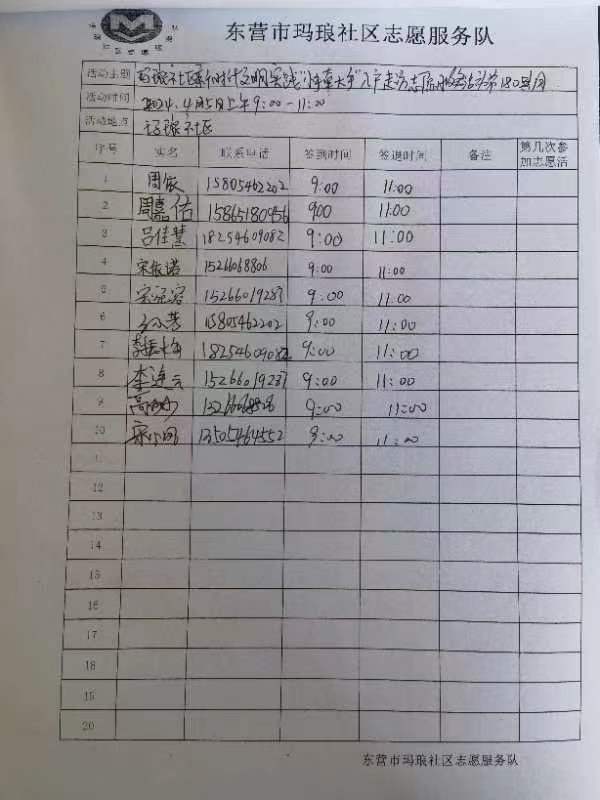 东营市玛琅社区志愿服务队
活动主题 玛琅社区新时代文明实践 入户走访志愿服务活动第180期
活动时间 2024.4月5日上午9:00-11:00
活动地点 玛琅社区
序号 实名 联系电话 签到时间 签退时间 备注 第几次参加志愿活
1 周 15805462202 9:00 11:00
2 周嘉佑 15865180956 9:00 11:00
3 吕佳慧 18254609082 9:00 11:00
4 宋依诺 15266068806 9:00 11:00
5 15266019287 9:00 11:00
6 15805462202 9:00 11:00
7 1825460908 9:00 11:00
8 李连云 15266019287 9:00 11:00
9 高 9:00 11:00
10 13505464552 9:00 11:00
1
12
13
14
15
16
17
18
19
20
东营市玛琅社区志愿服务队